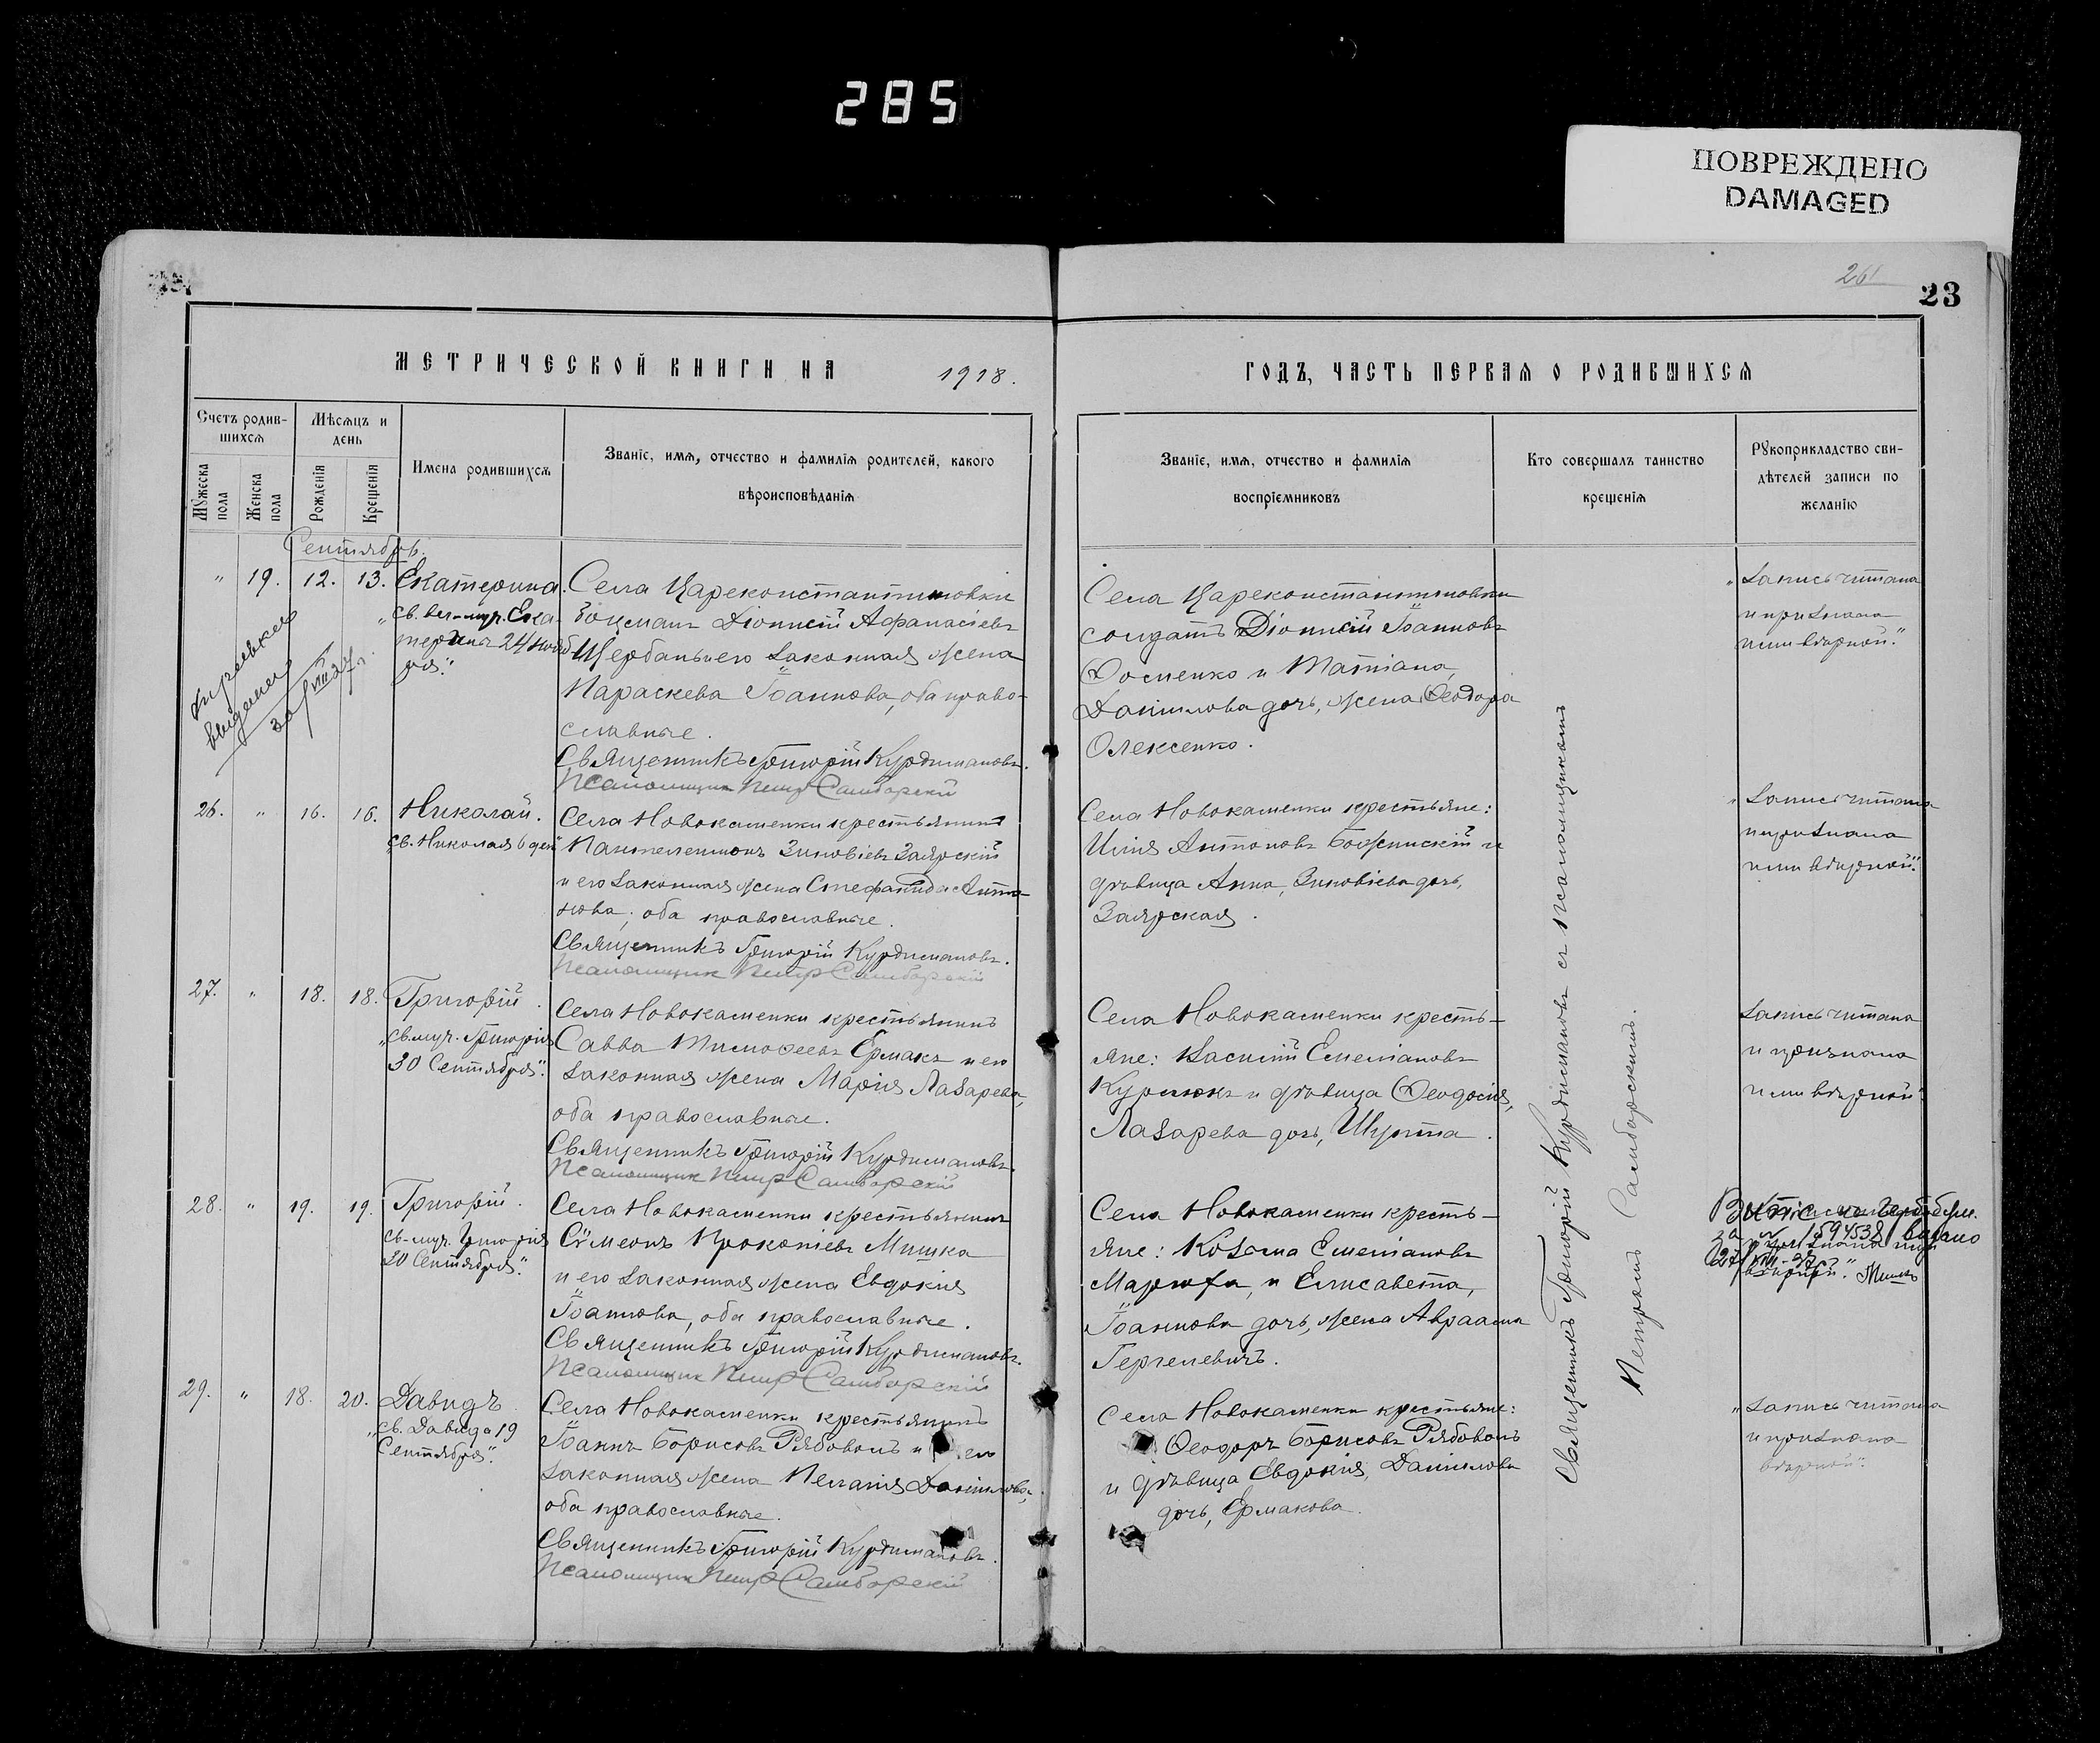 285
ПОВРЕЖДЕНО
DAMAGED
261
23
МЕТРИЧЕСКОЙ КНИГИ НА 1918.
ГОДЪ, ЧАСТЬ ПЕРВАЯ О РОДИВШИХСЯ
Счетъ родив-
шихся
Мужеска
пола
Женска
пола
Мѣсяцъ и
день
Рожденія
Крещенія
Имена родившихся
Званіе, имя, отчество и фамилія родителей, какого
вѣроисповѣданія
Званіе, имя, отчество и фамилія
воспріемниковъ
Кто совершалъ таинство
крещенія
Рукоприкладство сви-
дѣтелей записи по
желанію
Сентябрь.
" 19. 12. 13. Екатерина.
"Св. вел-муч. Ека-
терины 24 нояб
ря".
Села Цареконстантиновки
боцманъ Діонисій Афанасіевъ
Щербань и его законная жена
Параскева Іоаннова, оба право-
славные.
Священникъ Григорій Курдимановъ.
Псаломщик Петр Самборскій
Села Цареконстантиновки
солдатъ Діонисій Іоанновъ
Доценко и Татіана,
Даніилова дочь, жена Ѳеодора
Олексенко.
"Запись читана
и признана
ими вѣрной".
26. " 16. 16. Николай.
"Св. Николая 6 дек"
Села Новокаменки крестьянинъ
Пантелеимонъ Зиновіевъ Заярскій
и его законная жена Стефанида Анто-
нова; оба православные.
Священникъ Григорій Курдимановъ.
Псаломщик Петр Самборскій
Села Новокаменки крестьяне:
Илія Антоновъ Божинскій и
дѣвица Анна, Зиновіева дочь,
Заярская.
"Запись читана
и признана
ими вѣрной".
27. " 18. 18. Григорій.
"Св. муч. Григорія
30 Сентября".
Села Новокаменки крестьянинъ
Савва Тимоѳеевъ Ермакъ и его
законная жена Марія Лазарева,
оба православные.
Священникъ Григорій Курдимановъ.
Псаломщик Петр Самборскій
Села Новокаменки кресть-
яне: Василій Емеліановъ
Курилюкъ и дѣвица Ѳеодосія,
Лазарева дочь, Шурпа.
Запись читана
и признана
ими вѣрной".
28. " 19. 19. Григорій.
Св-муч. Григорія
30 Сентября".
Села Новокаменки крестьянинъ
Сѵмеонъ Прокопіевъ Мишка
и его законная жена Евдокія
Іоаннова, оба православные.
Священникъ Григорій Курдимановъ.
Псаломщик Петр Самборскій
Села Новокаменки кресть-
яне: Козьма Емеліановъ
Марюха, и Елисавета,
Іоаннова дочь, жена Авраама
Гергелевичъ.
за № 1594538 видано
29. " 18. 20. Давидъ
"Св. Давида 19
Сентября".
Села Новокаменки крестьянинъ
Іоаннъ Борисовъ Рябоволъ и его
законная жена Пелагія Даніилова,
оба православные.
Священникъ Григорій Курдимановъ.
Псаломщик Петр Самборскій
Села Новокаменки крестьяне:
Ѳеодоръ Борисовъ Рябоволъ
и дѣвица Евдокія, Даниилова
дочь, Ермакова.
"Запись читана
и признана
вѣрной".
Священникъ Григорій Курдимановъ съ псаломщикомъ
Петромъ Самборскимъ.